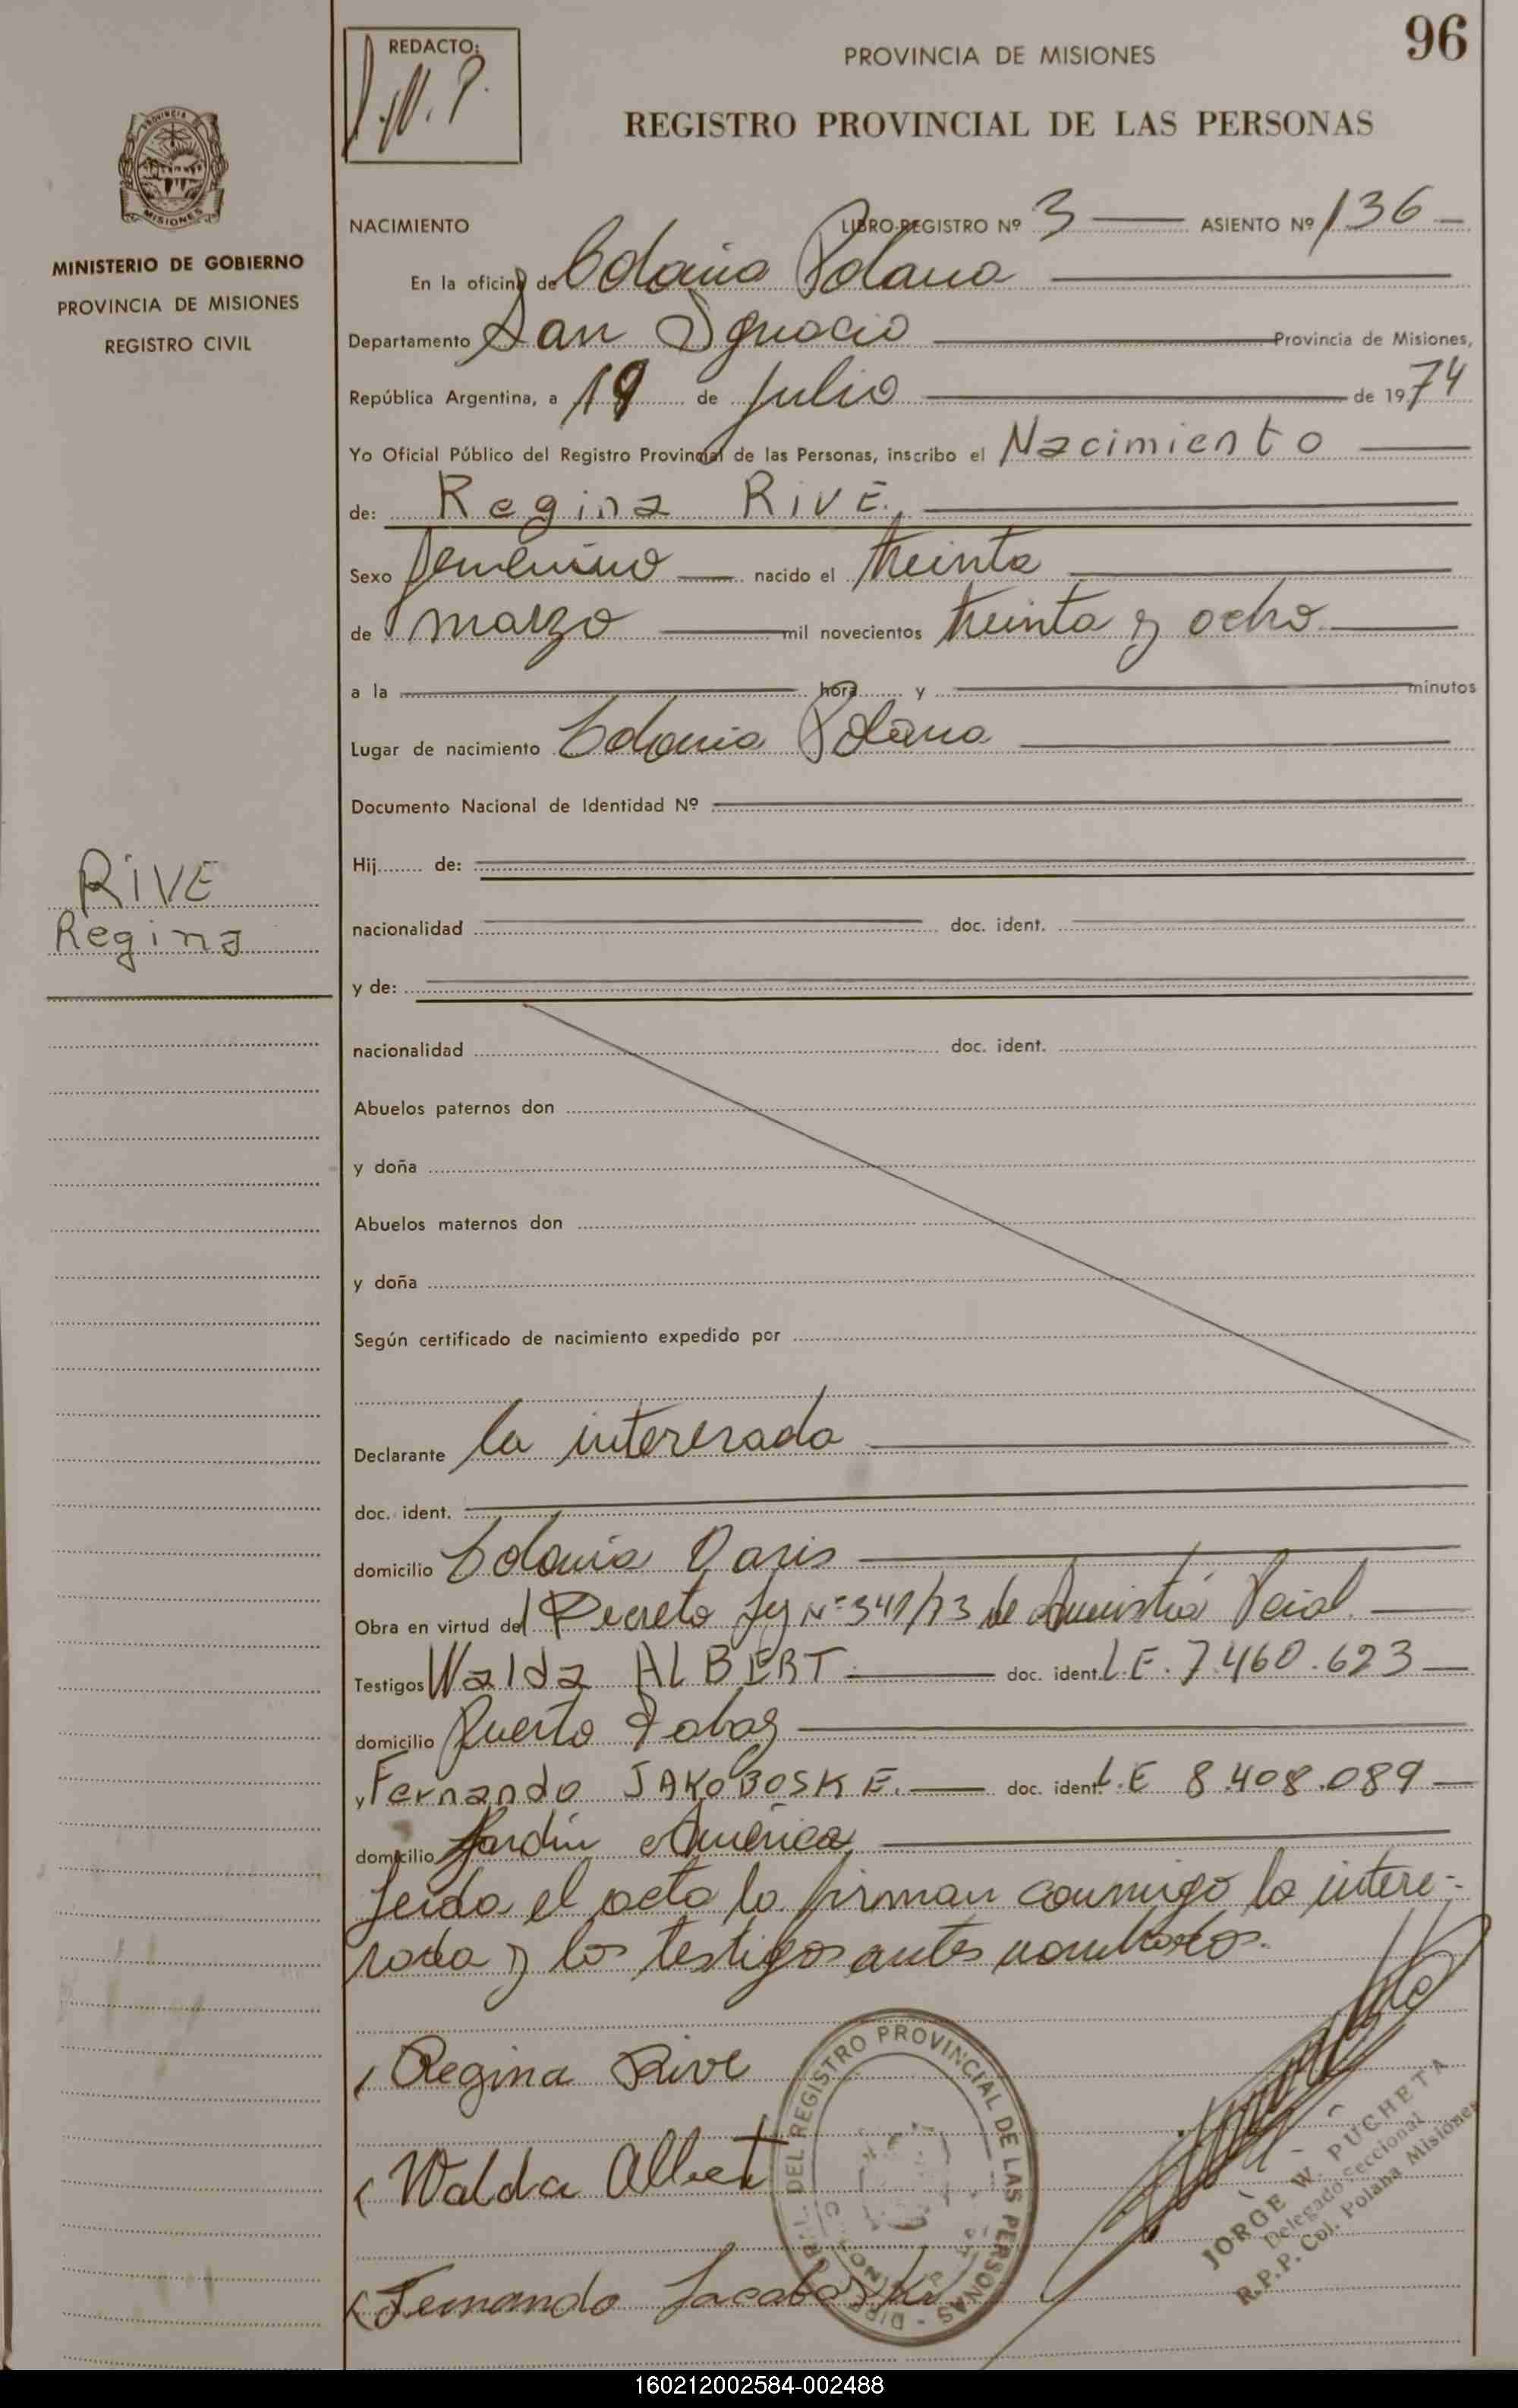 96
REDACTO:
PROVINCIA DE MISIONES
REGISTRO PROVINCIAL DE LAS PERSONAS
PROVINCIA DE
MISIONES
MINISTERIO DE GOBIERNO
PROVINCIA DE MISIONES
REGISTRO CIVIL
NACIMIENTO LIBRO-REGISTRO Nº 3 ASIENTO Nº 136
En la oficina de Colonia Polana
Departamento San Ignacio Provincia de Misiones,
República Argentina, a 19 de Julio de 1974
Yo Oficial Público del Registro Provincial de las Personas, inscribo el Nacimiento
de: Regina RIVE.
Sexo femenino nacido el treinta
de marzo mil novecientos treinta y ocho
a la hora y minutos
Lugar de nacimiento Colonia Polana
Documento Nacional de Identidad Nº
Hij de:
RIVE
Regina
nacionalidad doc. ident.
y de:
nacionalidad doc. ident.
Abuelos paternos don
y doña
Abuelos maternos don
y doña
Según certificado de nacimiento expedido por
Declarante la interesada
doc. ident.
domicilio Colonia Oasis
Obra en virtud del Decreto Ley Nº 341/73 de Amnistía
Testigos Walda ALBERT doc. ident. L.E. 7.460.623
domicilio Puerto
y Fernando JAKOBOSKE. doc. ident. L.E 8.408.089
domicilio Jardín América
Leída el acta la firman conmigo la intere-
sada y los testigos antes nombrados.
Regina Rive
Walda Albert
Fernando Jacaboski
DEL REGISTRO PROVINCIAL DE LAS PERSONAS
JORGE W. PUCHETA
Delegado Seccional
R.P.P. Col. Polana Misiones
160212002584-002488